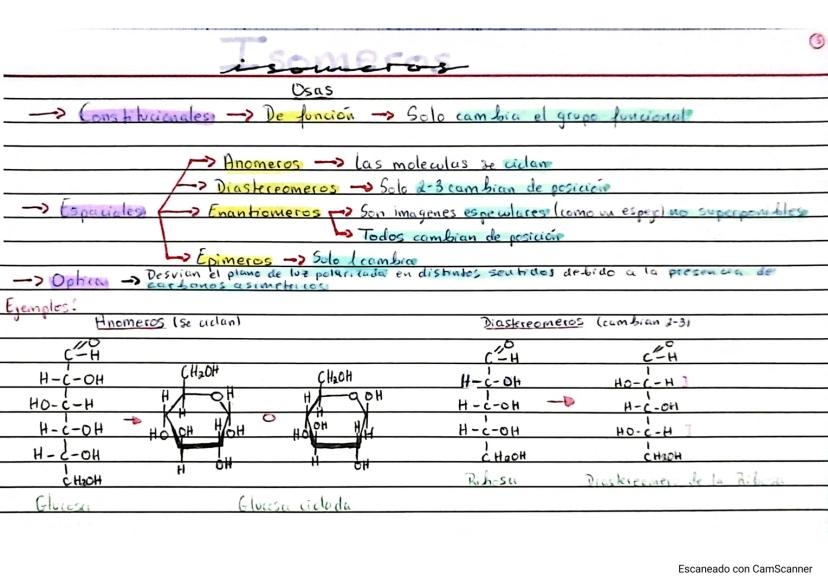 5
Isomeros
isomeros
Osas
→ Constitucionales → De función → Solo cambia el grupo funcional
→ Anomeros → Las moleculas se ciclan
→ Diastereomeros → Solo 2-3 cambian de posición
→ Espaciales → Enantiomeros → Son imagenes especulares (como un espejo) no superponibles
→ Todos cambian de posición
→ Epimeros → Solo 1 cambia
→ Optica → Desvian el plano de luz polarizada en distintos sentidos debido a la presencia de
carbonos asimetricos
Ejemplos:
Anomeros (se ciclan) Diastereomeros (cambian 2-3)
O O O
C-H C-H C-H
CH2OH CH2OH
H-C-OH H-C-OH HO-C-H
H O H H O OH
HO-C-H H-C-OH H-C-OH
H H
H-C-OH → HO OH H OH o HO OH H H H-C-OH → HO-C-H
H-C-OH H OH H OH CH2OH CH2OH
CH2OH Ribosa Diastereomero de la Ribosa
Glucosa Glucosa ciclada
Escaneado con CamScanner